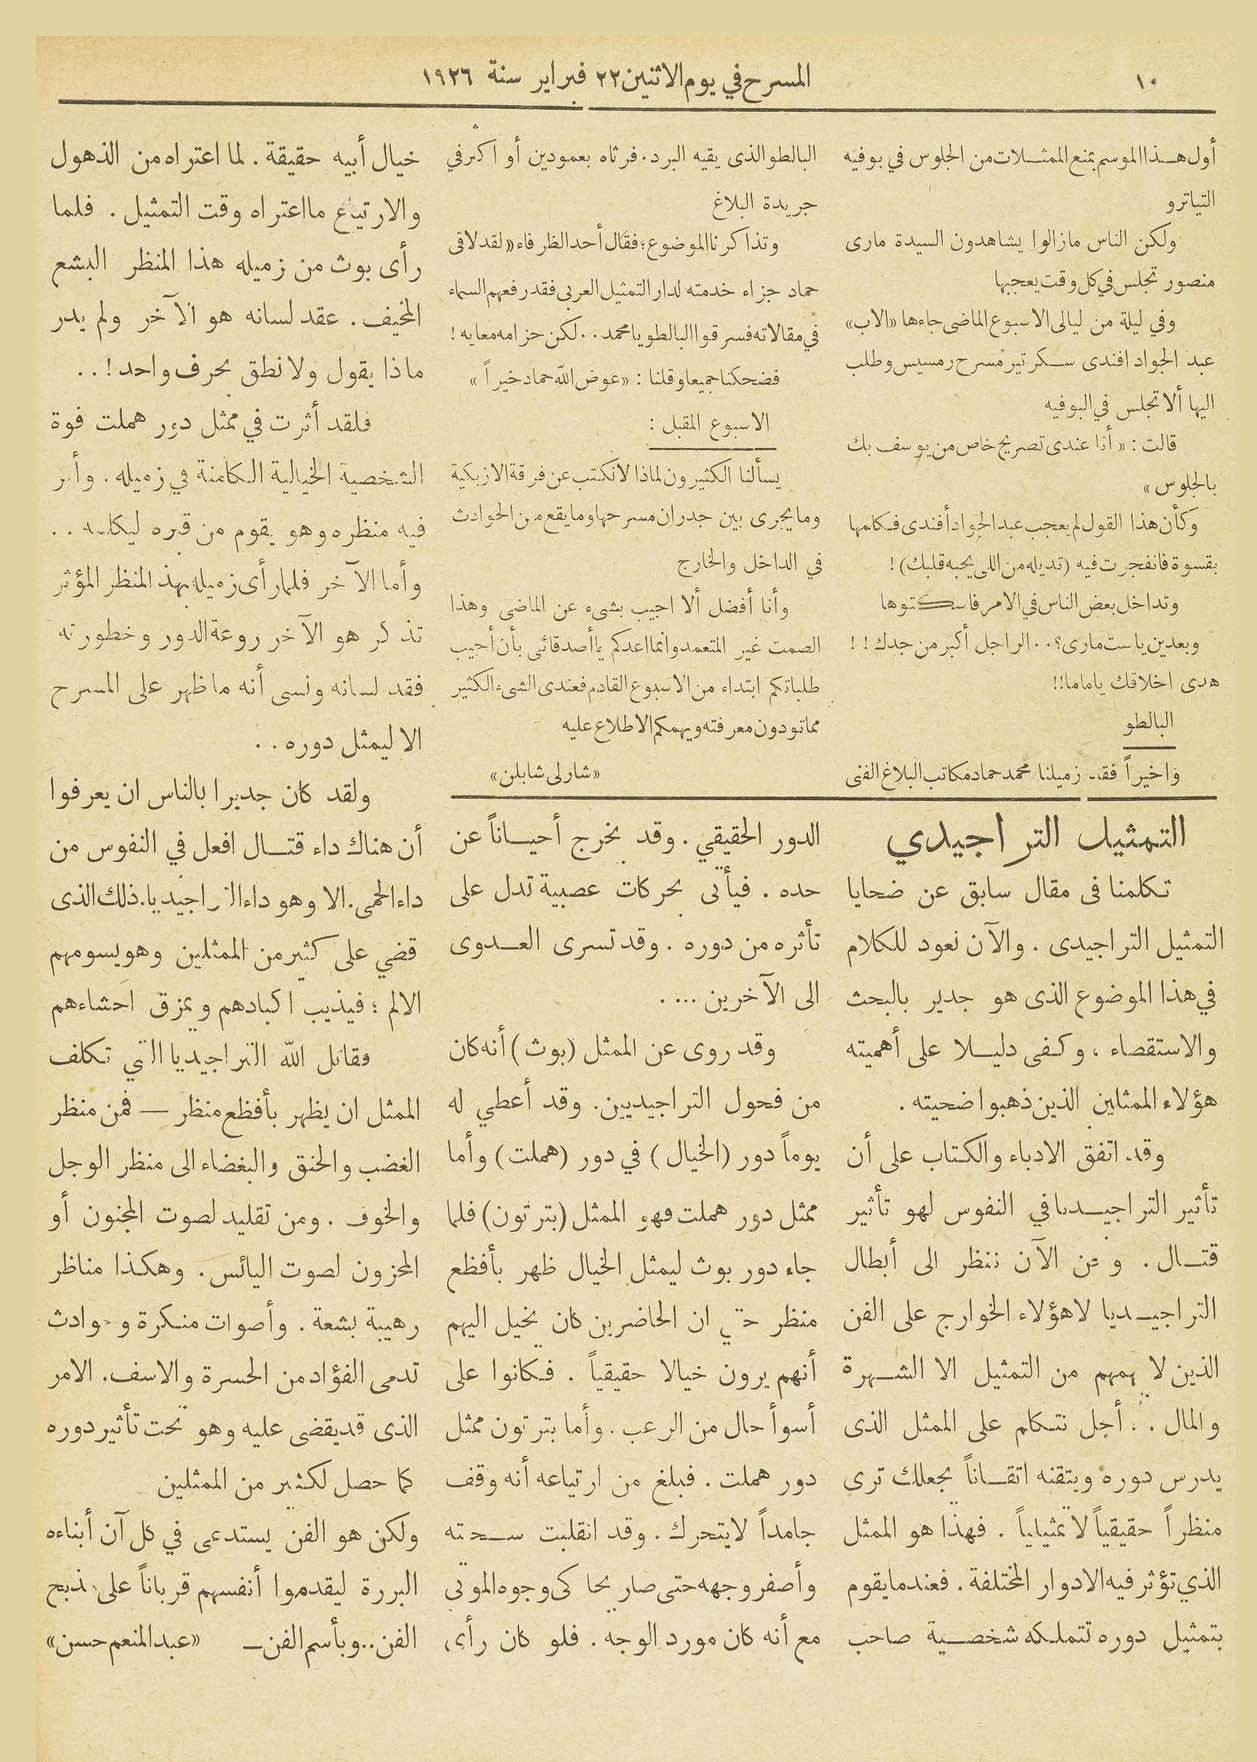 ١٠
المسرح في يوم الاثنين ٢٢ فبراير سنة ١٩٢٦
أول هذا الموسم بمنع الممثلات من الجلوس في بوفيه
التياترو
ولكن الناس مازالوا يشاهدون السيدة مارى
منصور تجلس في كل وقت يعجبها
وفي ليلة من ليالى الاسبوع الماضى جاءها «الاب»
عبد الجواد افندى سكرتير مسرح رمسيس وطلب
اليها ألا تجلس في البوفيه
قالت : « أنا عندى تصريح خاص من يوسف بك
بالجلوس »
وكأن هذا القول لم يعجب عبد الجواد أفندى فكلمها
بقسوة فانفجرت فيه (تديله من اللى يحبه قلبك) !
وتداخل بعض الناس في الامر فاسكتوها
وبعدين ياست مارى؟ . . الراجل أكبر من جدك ! !
هدى اخلاقك ياماما!!
البالطو
وأخيراً فقد زميلنا محمد حماد مكاتب البلاغ الفنى
البالطو الذى يقيه البرد . فرثاه بعمودين أو اكثر في
جريدة البلاغ
وتذاكرنا الموضوع ؛ فقال أحد الظرفاء «لقد لاقى
حماد جزاء خدمته لدار التمثيل العربى فقد رفعهم السماء
في مقالاته فسرقوا البالطو يا محمد . . لكن حزامه معايه !
فضحكنا جميعا وقلنا : «عوض الله حماد خيراً »
الاسبوع المقبل :
يسألنا الكثيرون لماذا لانكتب عن فرقة الازبكية
ومايجرى بين جدران مسرحها ومايقع من الحوادث
في الداخل والخارج
وأنا أفضل ألا اجيب بشىء عن الماضى وهذا
الصمت غير المتعمد وانما اعدكم يا أصدقائى بأن أجيب
طلباتكم ابتداء من الاسبوع القادم فعندى الشىء الكثير
مما تودون معرفته ويهمكم الاطلاع عليه
«شارلى شابلن»
التمثيل التراجيدي
تكلمنا فى مقال سابق عن ضحايا
التمثيل التراجيدى . والآن نعود للكلام
في هذا الموضوع الذى هو جدير بالبحث
والاستقصاء ، وكفى دليلا على أهميته
هؤلاء الممثلين الذين ذهبوا ضحيته .
وقد اتفق الادباء والكتاب على أن
تأثير التراجيديا في النفوس لهو تأثير
قتال . ونحن الآن ننظر الى أبطال
التراجيديا لاهؤلاء الخوارج على الفن
الذين لا يهمهم من التمثيل الا الشهرة
والمال . . أجل نتكلم على الممثل الذى
يدرس دوره ويتقنه اتقاناً يجعلك ترى
منظراً حقيقياً لا تمثيلياً . فهذا هو الممثل
الذي تؤثر فيه الادوار المختلفة . فعندما يقوم
بتمثيل دوره تتملكه شخصية صاحب
الدور الحقيقي . وقد يخرج أحياناً عن
حده . فيأتى بحركات عصبية تدل على
تأثره من دوره . وقد تسرى العدوى
الى الآخرين ... .
وقد روى عن الممثل (بوث) أنه كان
من فحول التراجيديين. وقد أعطي له
يوماً دور (الخيال) في دور (هملت) وأما
ممثل دور هملت فهو الممثل (بترتون) فلما
جاء دور بوث ليمثل الخيال ظهر بأفظع
منظر حتى ان الحاضرين كان يخيل اليهم
أنهم يرون خيالا حقيقياً . فكانوا على
أسوأ حال من الرعب . وأما بترتون ممثل
دور هملت . فبلغ من ارتياعه أنه وقف
جامداً لايتحرك . وقد انقلبت سحنته
وأصفر وجهه حتى صار يحاكى وجوه الموتى
مع أنه كان مورد الوجه . فلو كان رأى
خيال أبيه حقيقة . لما اعتراه من الذهول
والارتياع مااعتراه وقت التمثيل . فلما
رأى بوث من زميله هذا المنظر البشع
المخيف . عقد لسانه هو الآخر ولم يدر
ماذا يقول ولا نطق بحرف واحد ! . .
فلقد أثرت في ممثل دور هملت قوة
الشخصية الخيالية الكامنة في زميله . وأثر
فيه منظره وهو يقوم من قبره ليكلمه . .
وأما الآخر فلما رأى زميله بهذا المنظر المؤثر
تذكر هو الآخر روعة الدور وخطورته
فقد لسانه ونسى أنه ماظهر على المسرح
الا ليمثل دوره . .
ولقد كان جديرا بالناس ان يعرفوا
أن هناك داء قتال افعل في النفوس من
داء الحمى. الا وهو داء التراجيديا. ذلك الذى
قضي على كثير من الممثلين وهو يسومهم
الالم ؛ فيذيب اكبادهم ويمزق احشاءهم
فقاتل الله التراجيديا التي تكلف
الممثل ان يظهر بأفظع منظر — فمن منظر
الغضب والحنق والبغضاء الى منظر الوجل
والخوف . ومن تقليد لصوت المجنون أو
المحزون لصوت اليائس . وهكذا مناظر
رهيبة بشعة . وأصوات منكرة وحوادث
تدمى الفؤاد من الحسرة والاسف. الامر
الذى قد يقضى عليه وهو تحت تأثير دوره
كما حصل لكثير من الممثلين
ولكن هو الفن يستدعى في كل آن أبناءه
البررة ليقدموا أنفسهم قرباناً على مذبح
الفن.. وبأسم الفن — «عبد المنعم حسن»